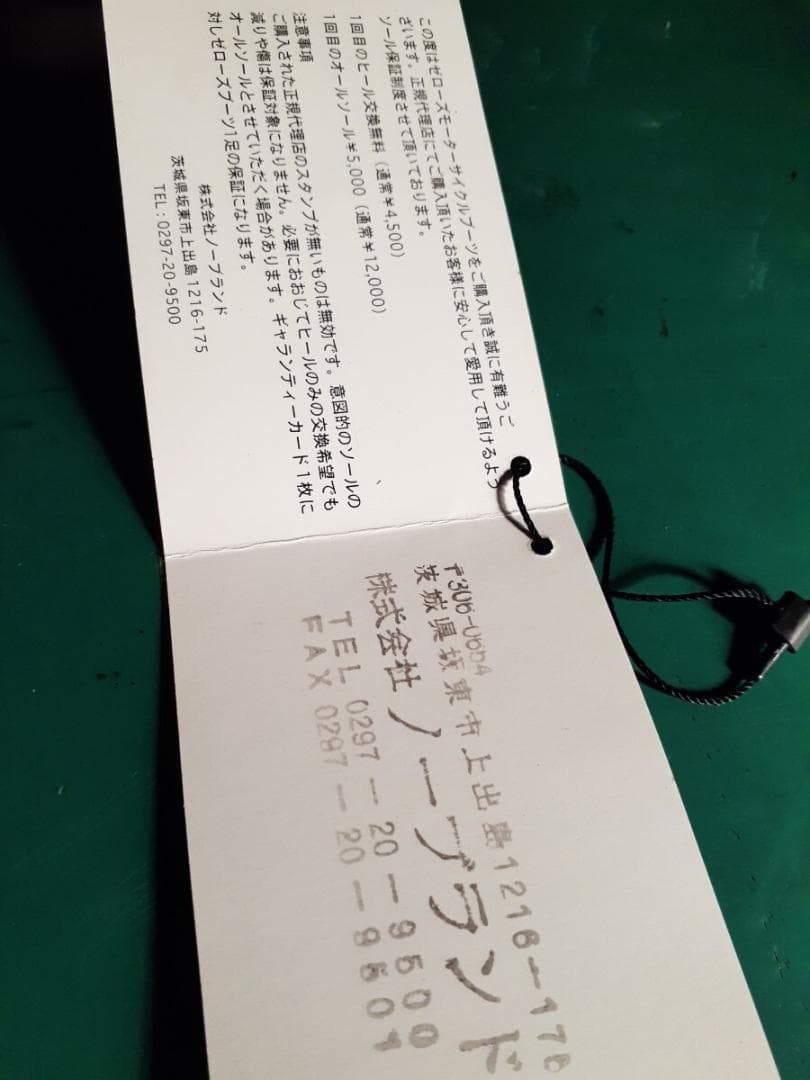 この度はゼローズモーターサイクルブーツをご購入頂き誠に有難うご
ざいます。正規代理店にてご購入頂いたお客様に安心して愛用して頂けるよう
ソール保証制度させて頂いております。
1回目のヒール交換無料（通常¥4,500）
1回目のオールソール¥5,000（通常¥12,000）
注意事項
ご購入された正規代理店のスタンプが無いものは無効です。意図的のソールの
減りや傷は保証対象になりません。必要におおじてヒールのみの交換希望でも
オールソールとさせていただく場合があります。ギャランティーカード1枚に
対しゼローズブーツ1足の保証になります。
株式会社ノーブランド
茨城県坂東市上出島1216-175
TEL：0297-20-9500
〒306-0654
茨城県坂東市上出島1216-175
株式会社ノーブランド
TEL 0297-20-9500
FAX 0297-20-9501